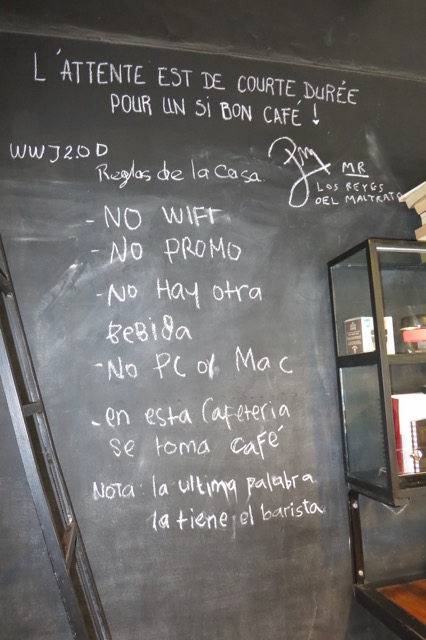 L'ATTENTE EST DE COURTE DURÉE
POUR UN SI BON CAFÉ !
WWJ2.0D
Reglas de la Casa
MR
LOS REYES
DEL MALTRATO
- NO WIFI
- NO PROMO
- No Hay otra
Bebida
- No PC or Mac
- en esta Cafeteria
se toma café
NOTA: la ultima palabra
la tiene el barista